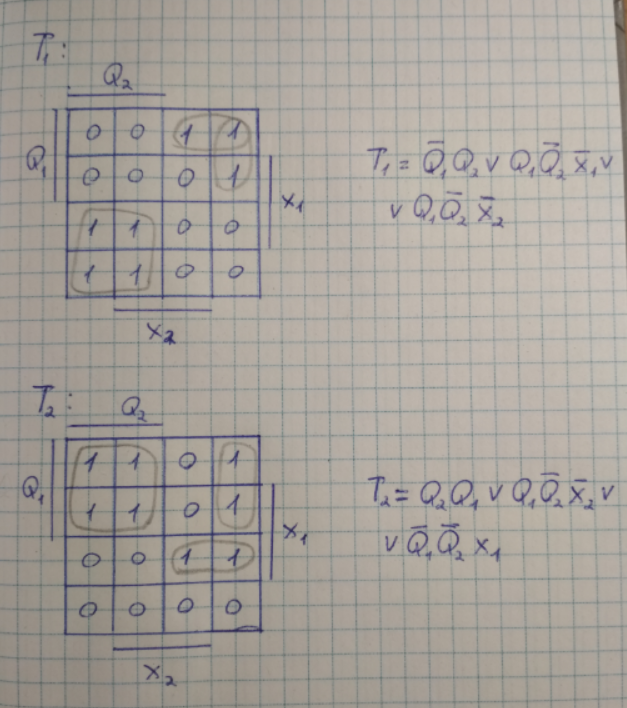 T₁:
Q₂
0 0 1 1
Q₁
0 0 0 1
x₁
1 1 0 0
1 1 0 0
x₂
T₁ = Q̅₁Q₂ ∨ Q₁Q̅₂x̅₁ ∨
∨ Q₁Q̅₂x̅₂
T₂:
Q₂
1 1 0 1
Q₁
1 1 0 1
x₁
0 0 1 1
0 0 0 0
x₂
T₂ = Q₂Q₁ ∨ Q₁Q̅₂x̅₂ ∨
∨ Q̅₁Q̅₂x₁